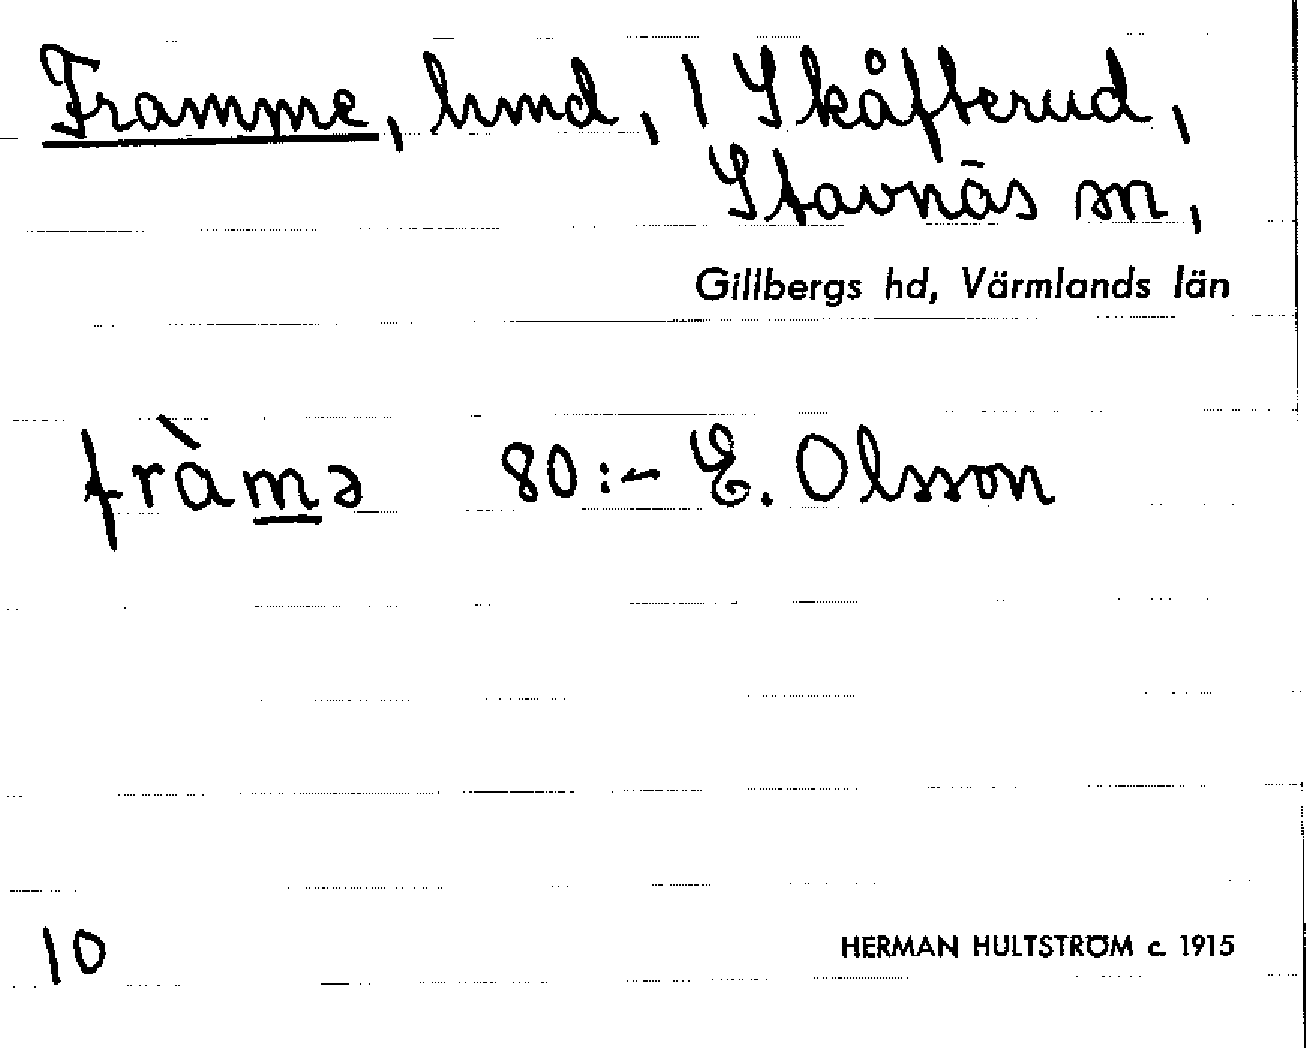 Framme, hmd, 1 Skåfterud,
Stavnäs sn,
Gillbergs hd, Värmlands län
fràmə 80:- E. Olsson
10
HERMAN HULTSTRÖM c. 1915